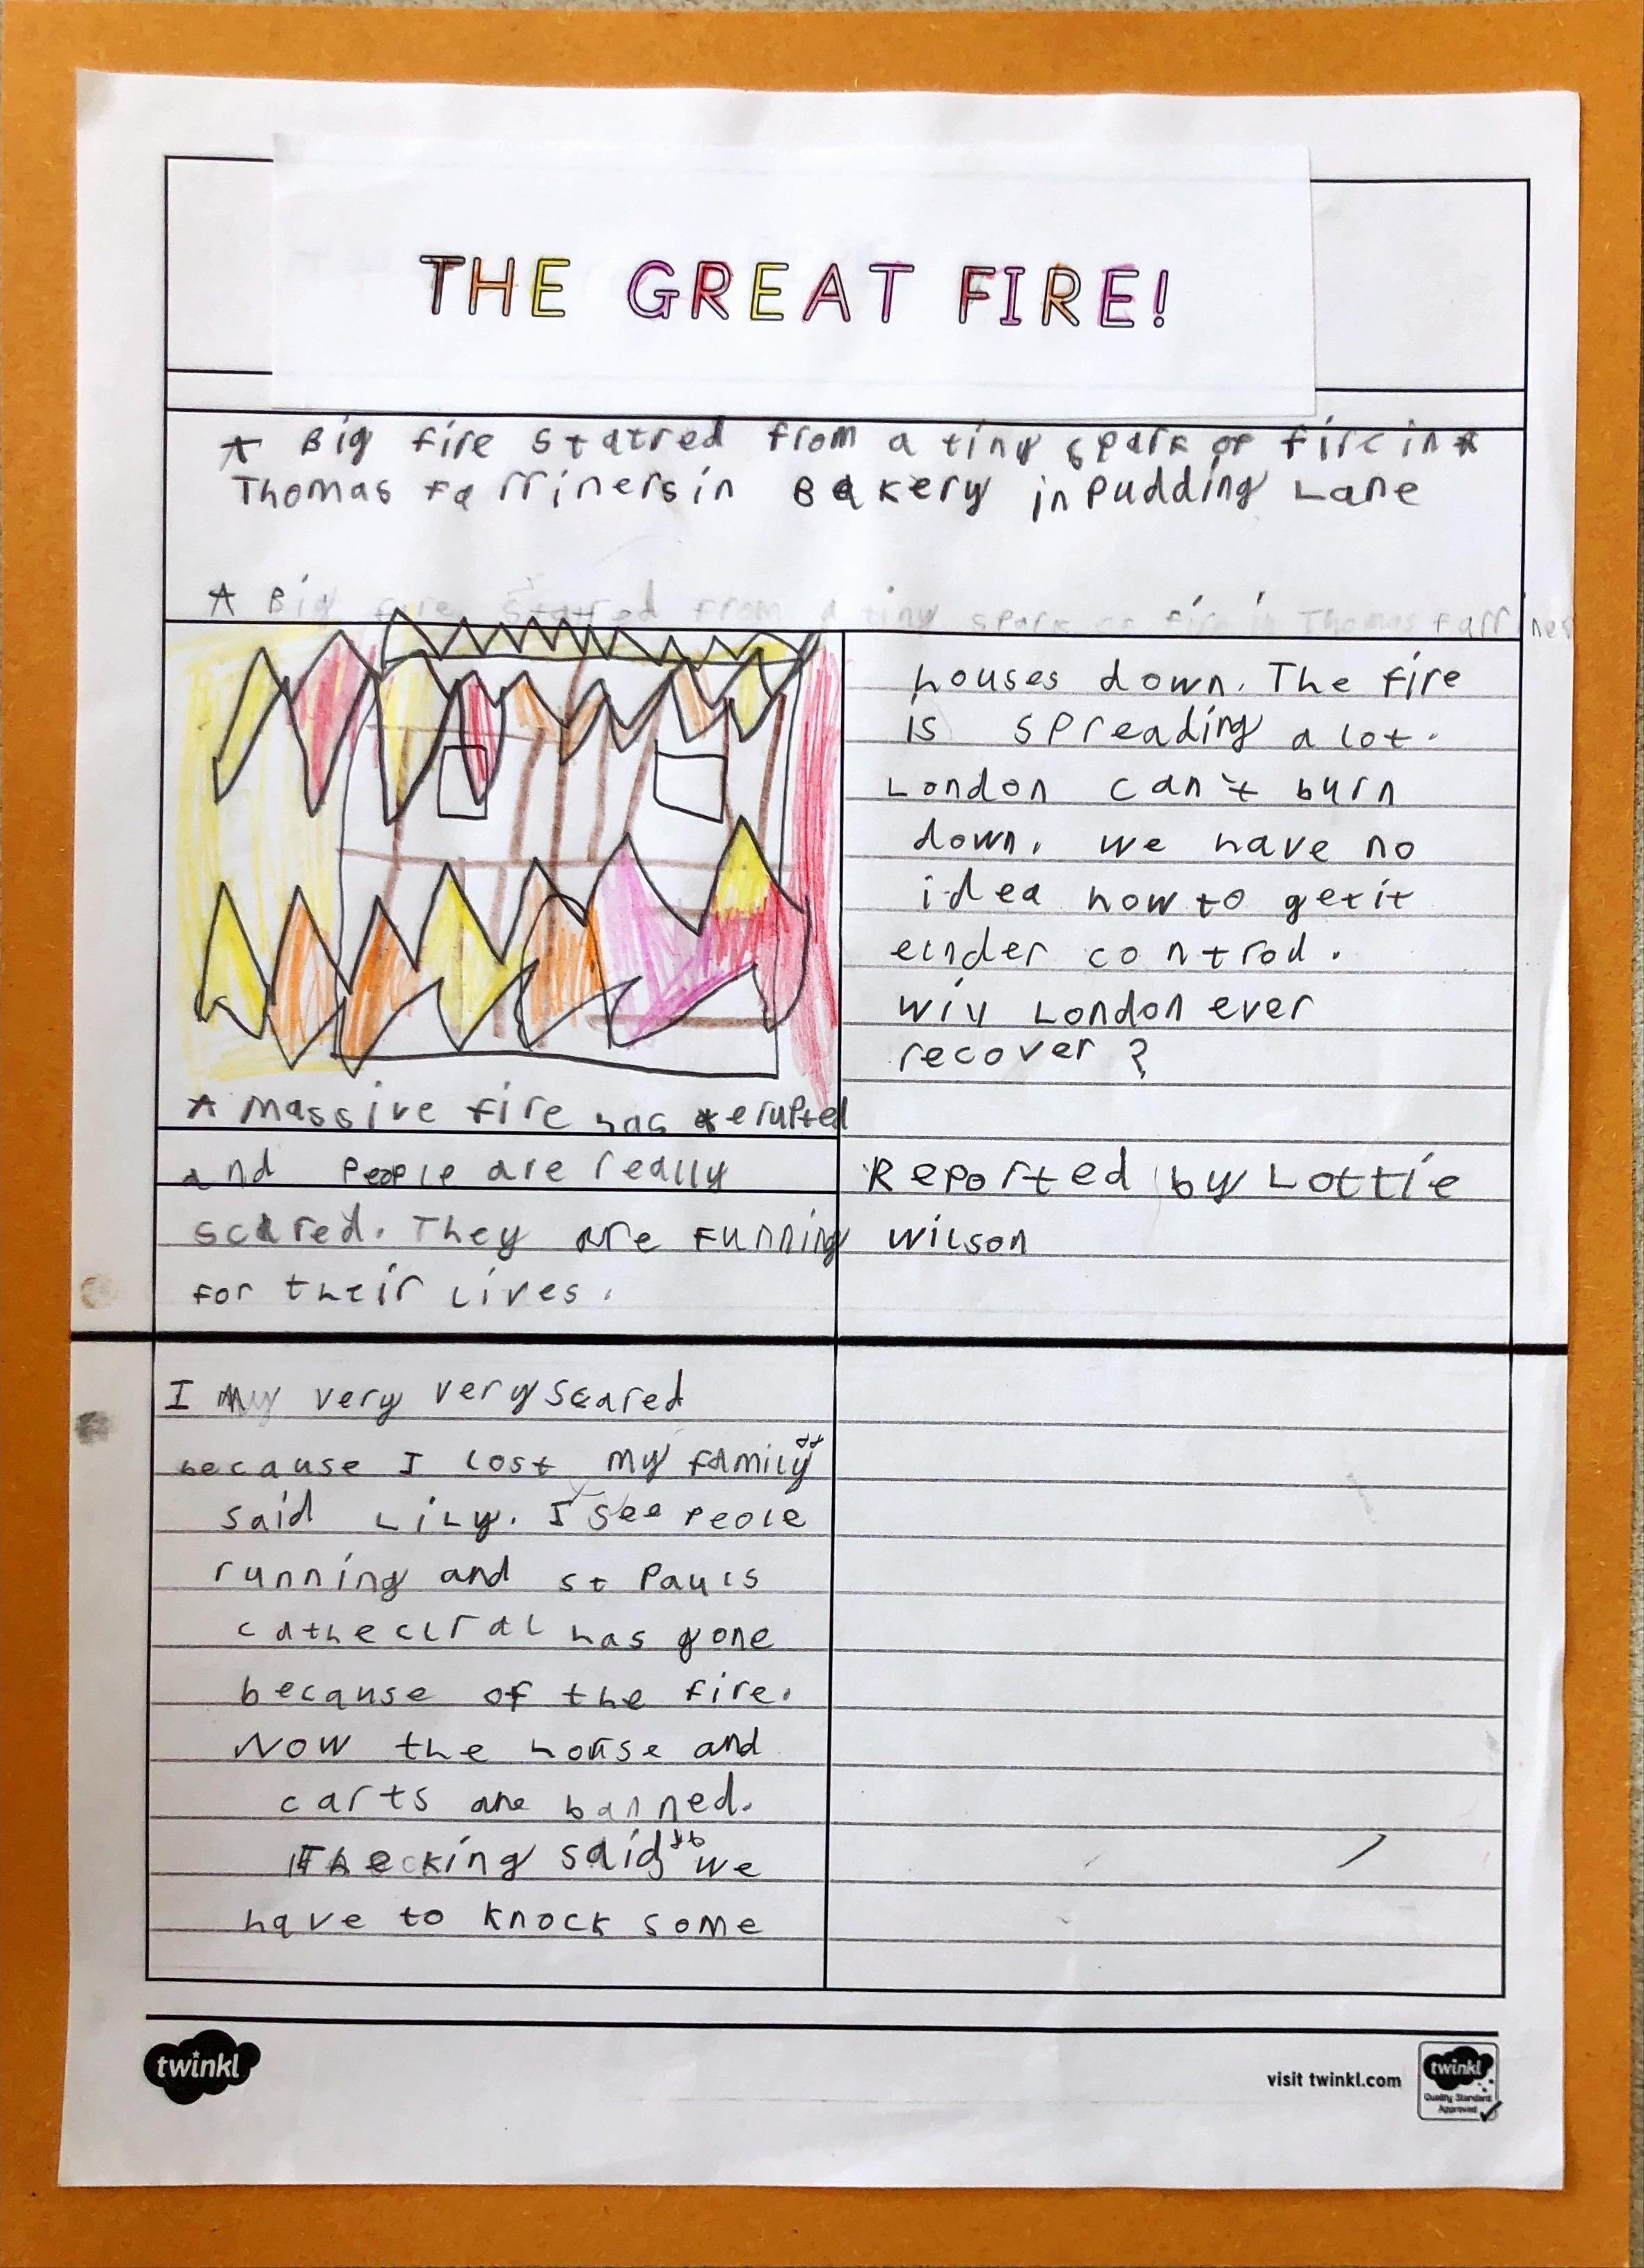 THE GREAT FIRE!
A Big fire statred from a tiny spark of fire in
Thomas farriners in Bakery in Pudding Lane
A Big fire statred from a tiny spark of fire in Thomas farriner
A massive fire has erupted
and people are really
scared. They are running
for their lives.
I my very very scared
because I lost my family"
said Lily. I see peole
running and st Pauls
catheciral has gone
because of the fire.
Now the house and
carts are banned.
The king said "we
have to knock some
houses down. The fire
is spreading a lot.
London can't burn
down. we have no
idea how to get it
einder control.
will London ever
recover?
Reported by Lottie
Wilson
twinkl
visit twinkl.com
twinkl
Quality Standard
Approved